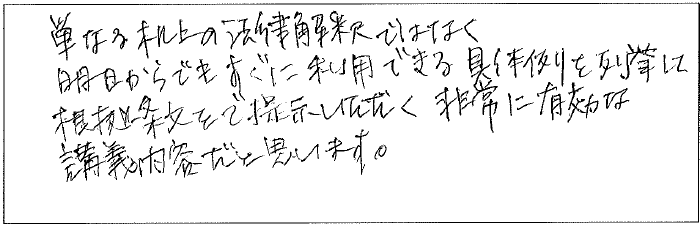 単なる机上の法律解釈ではなく
明日からでもすぐに利用できる具体例を列挙して
根拠条文をご提示いただく非常に有効な
講義内容だと思います。